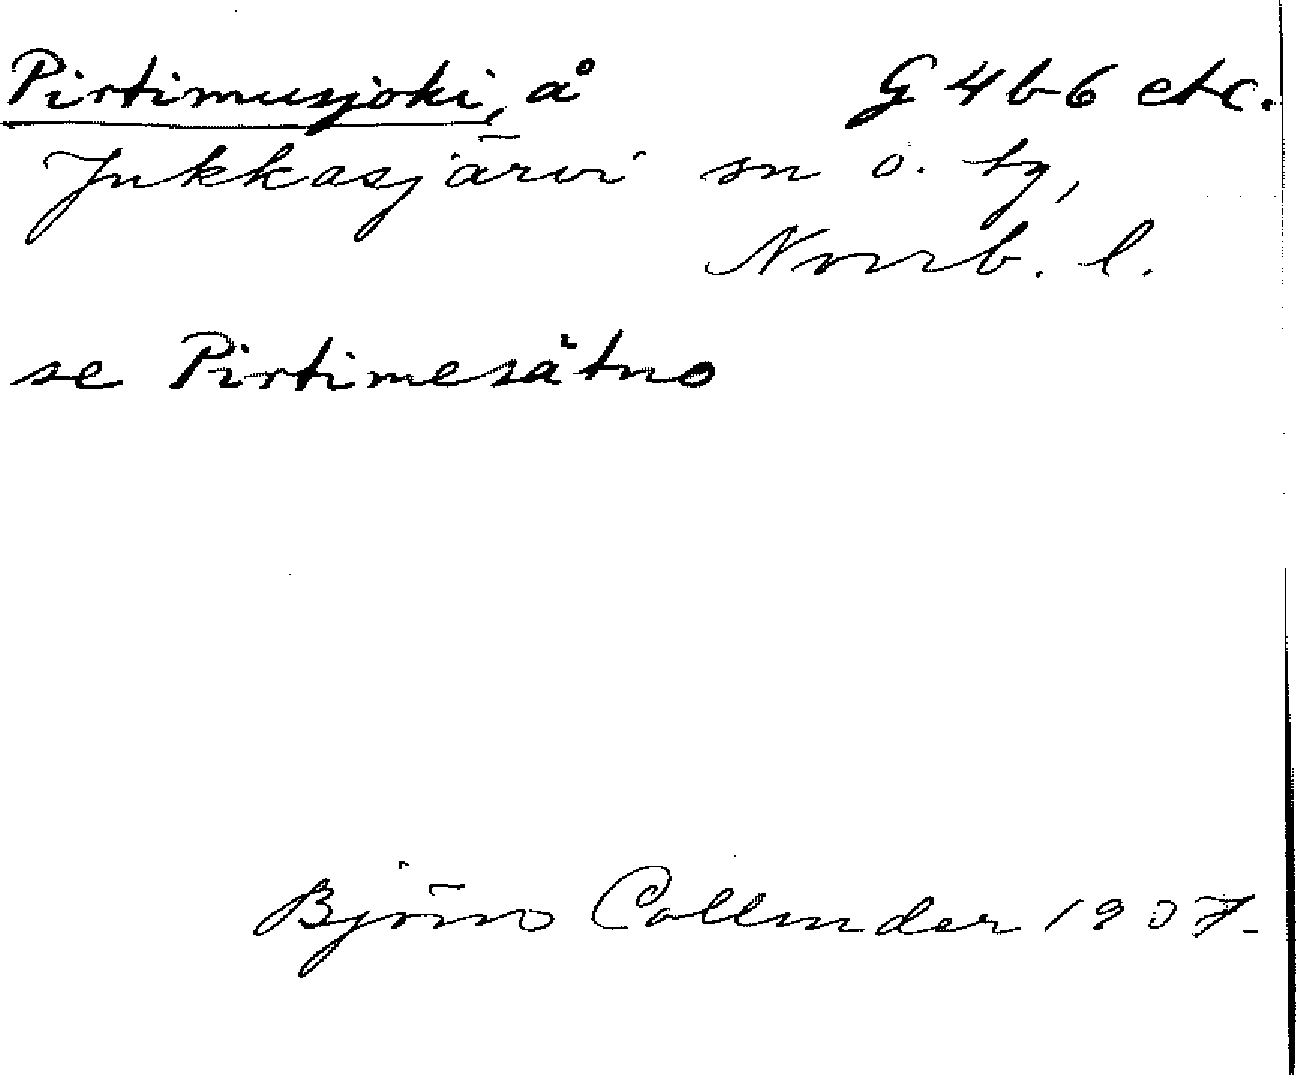 Pirtimusjoki, å G 4 b 6 etc.
Jukkasjärvi sn o. by,
Norrb. l.
se Pirtimesätno
Björn Collinder 1907